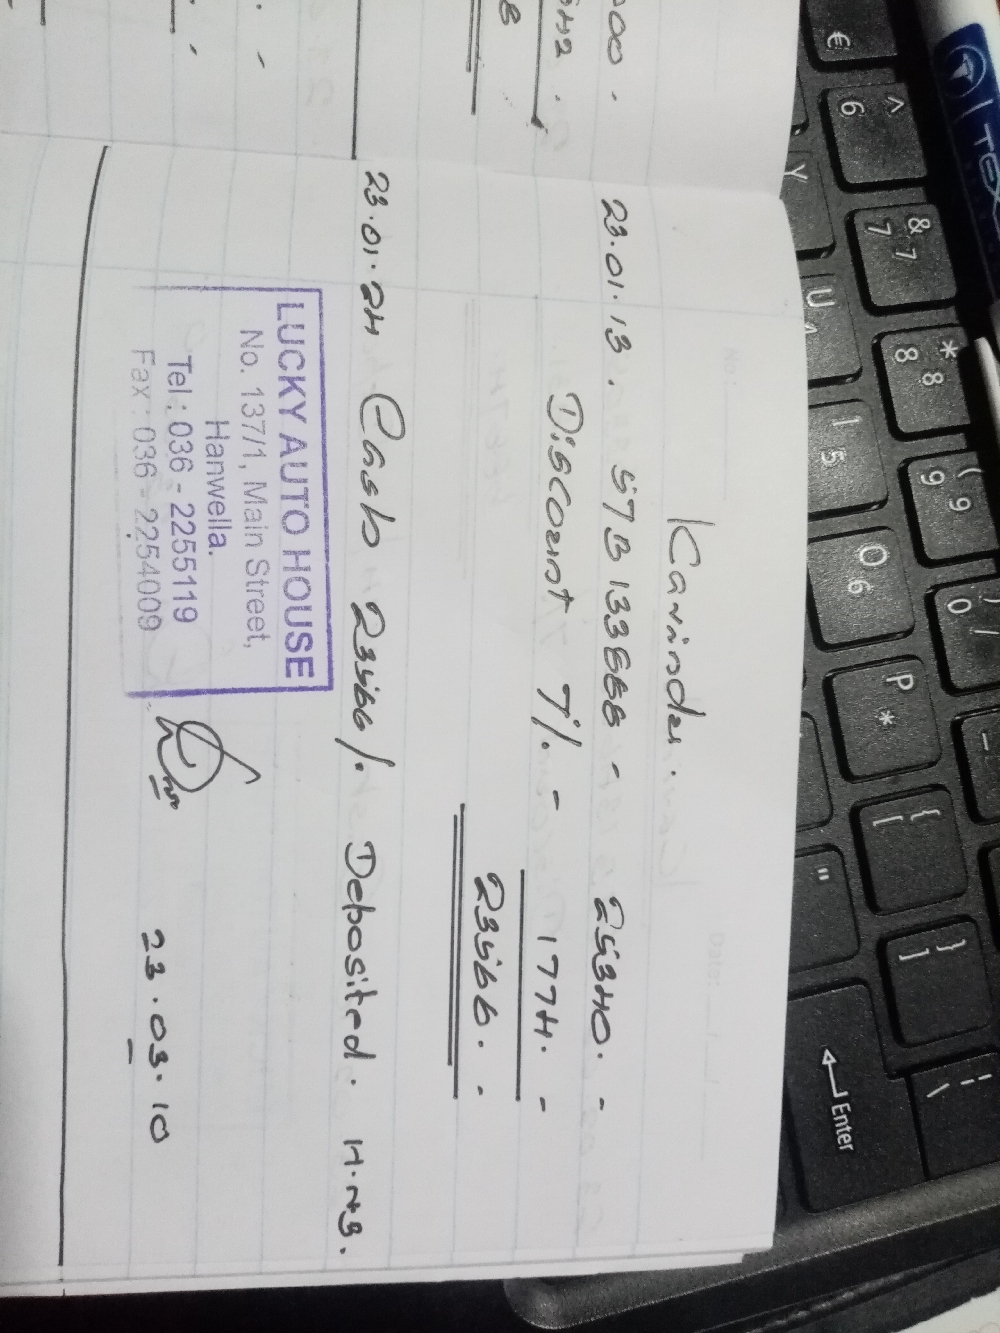 Kavinda.
23.01.13. 57B13368 - 25340. -
Discount 7%. - 1774. -
23566. -
23.01.24 Cash 23566/. Deposited. H.N.B.
LUCKY AUTO HOUSE
No. 137/1, Main Street,
Hanwella.
Tel : 036 - 2255119
Fax : 036 - 2254009
23.03.10
€
^
6
&
7
7
*
8
8
(
9
9
)
0
/
Y
U
I
5
O
6
P
*
{
[
}
]
"
Enter
TEX